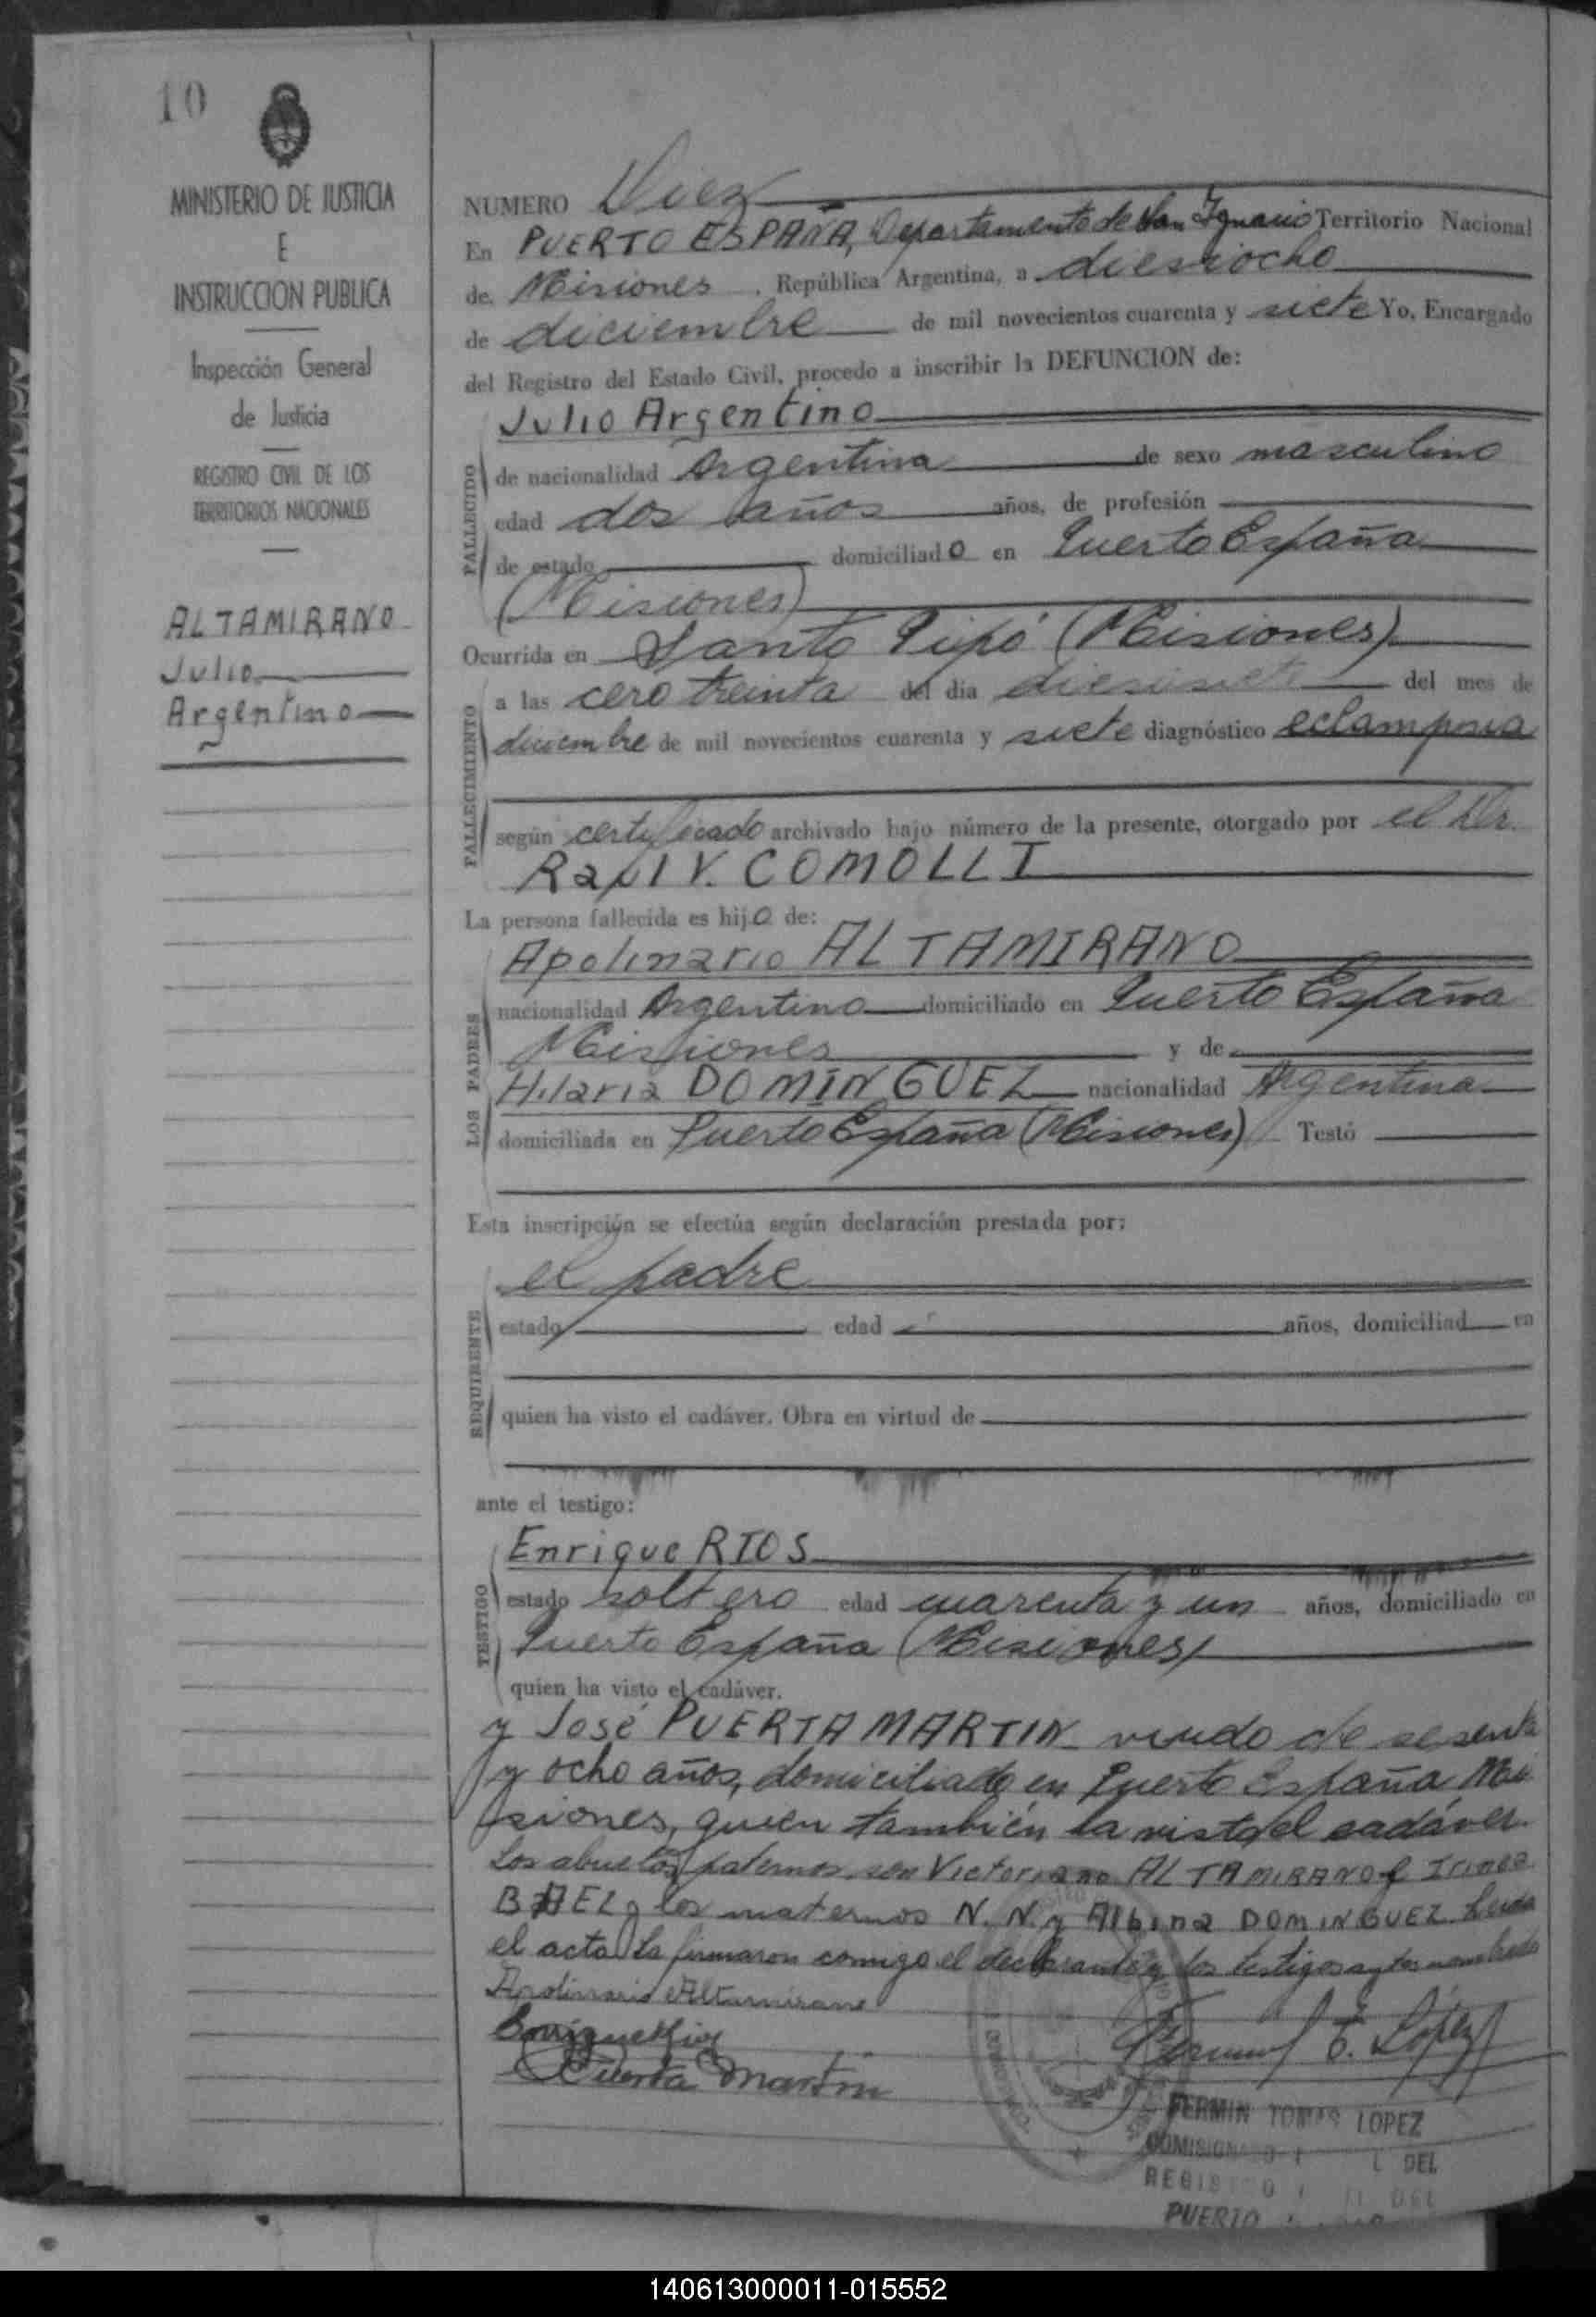 10
MINISTERIO DE JUSTICIA
E
INSTRUCCION PUBLICA
Inspección General
de Justicia
REGISTRO CIVIL DE LOS
TERRITORIOS NACIONALES
ALTAMIRANO
Julio
Argentino
NUMERO Diez
En PUERTO ESPAÑA, Departamento de San Ignacio Territorio Nacional
de Misiones, República Argentina, a diesiocho
de diciembre de mil novecientos cuarenta y siete Yo, Encargado
del Registro del Estado Civil, procedo a inscribir la DEFUNCION de:
Julio Argentino
FALLECIDO
de nacionalidad Argentina de sexo masculino
edad dos años años, de profesión
de estado domiciliado en Puerto España
(Misiones)
Ocurrida en Santo Pipó (Misiones)
FALLECIMIENTO
a las cero treinta del día diesisiete del mes de
diciembre de mil novecientos cuarenta y siete diagnóstico eclampsia
según certificado archivado bajo número de la presente, otorgado por el Dr.
Raúl V. COMOLLI
La persona fallecida es hijo de:
LOS PADRES
Apolinario ALTAMIRANO
nacionalidad Argentino domiciliado en Puerto España
Misiones y de
Hilaria DOMINGUEZ nacionalidad Argentina
domiciliada en Puerto España (Misiones) Testó
Esta inscripción se efectúa según declaración prestada por:
REQUIRENTE
el padre
estado edad años, domiciliad en
quien ha visto el cadáver. Obra en virtud de
ante el testigo:
TESTIGO
Enrique RIOS
estado soltero edad cuarenta y un años, domiciliado en
Puerto España (Misiones)
quien ha visto el cadáver.
y José PUERTA MARTIN viudo de sesenta
y ocho años, domiciliado en Puerto España Mi
siones, quien también ha visto el cadáver.
Los abuelos paternos son Victoriano ALTAMIRANO e Irinea
BAEZ y los maternos N. N. y Albina DOMINGUEZ. Leida
el acta la firmaron conmigo el declarante y los testigos antes nombrado
Apolinario Altamirano
Enrique Rios
Puerta Martin
Fermin T. López
FERMIN TOMAS LOPEZ
DEL
PUERTO
140613000011-015552